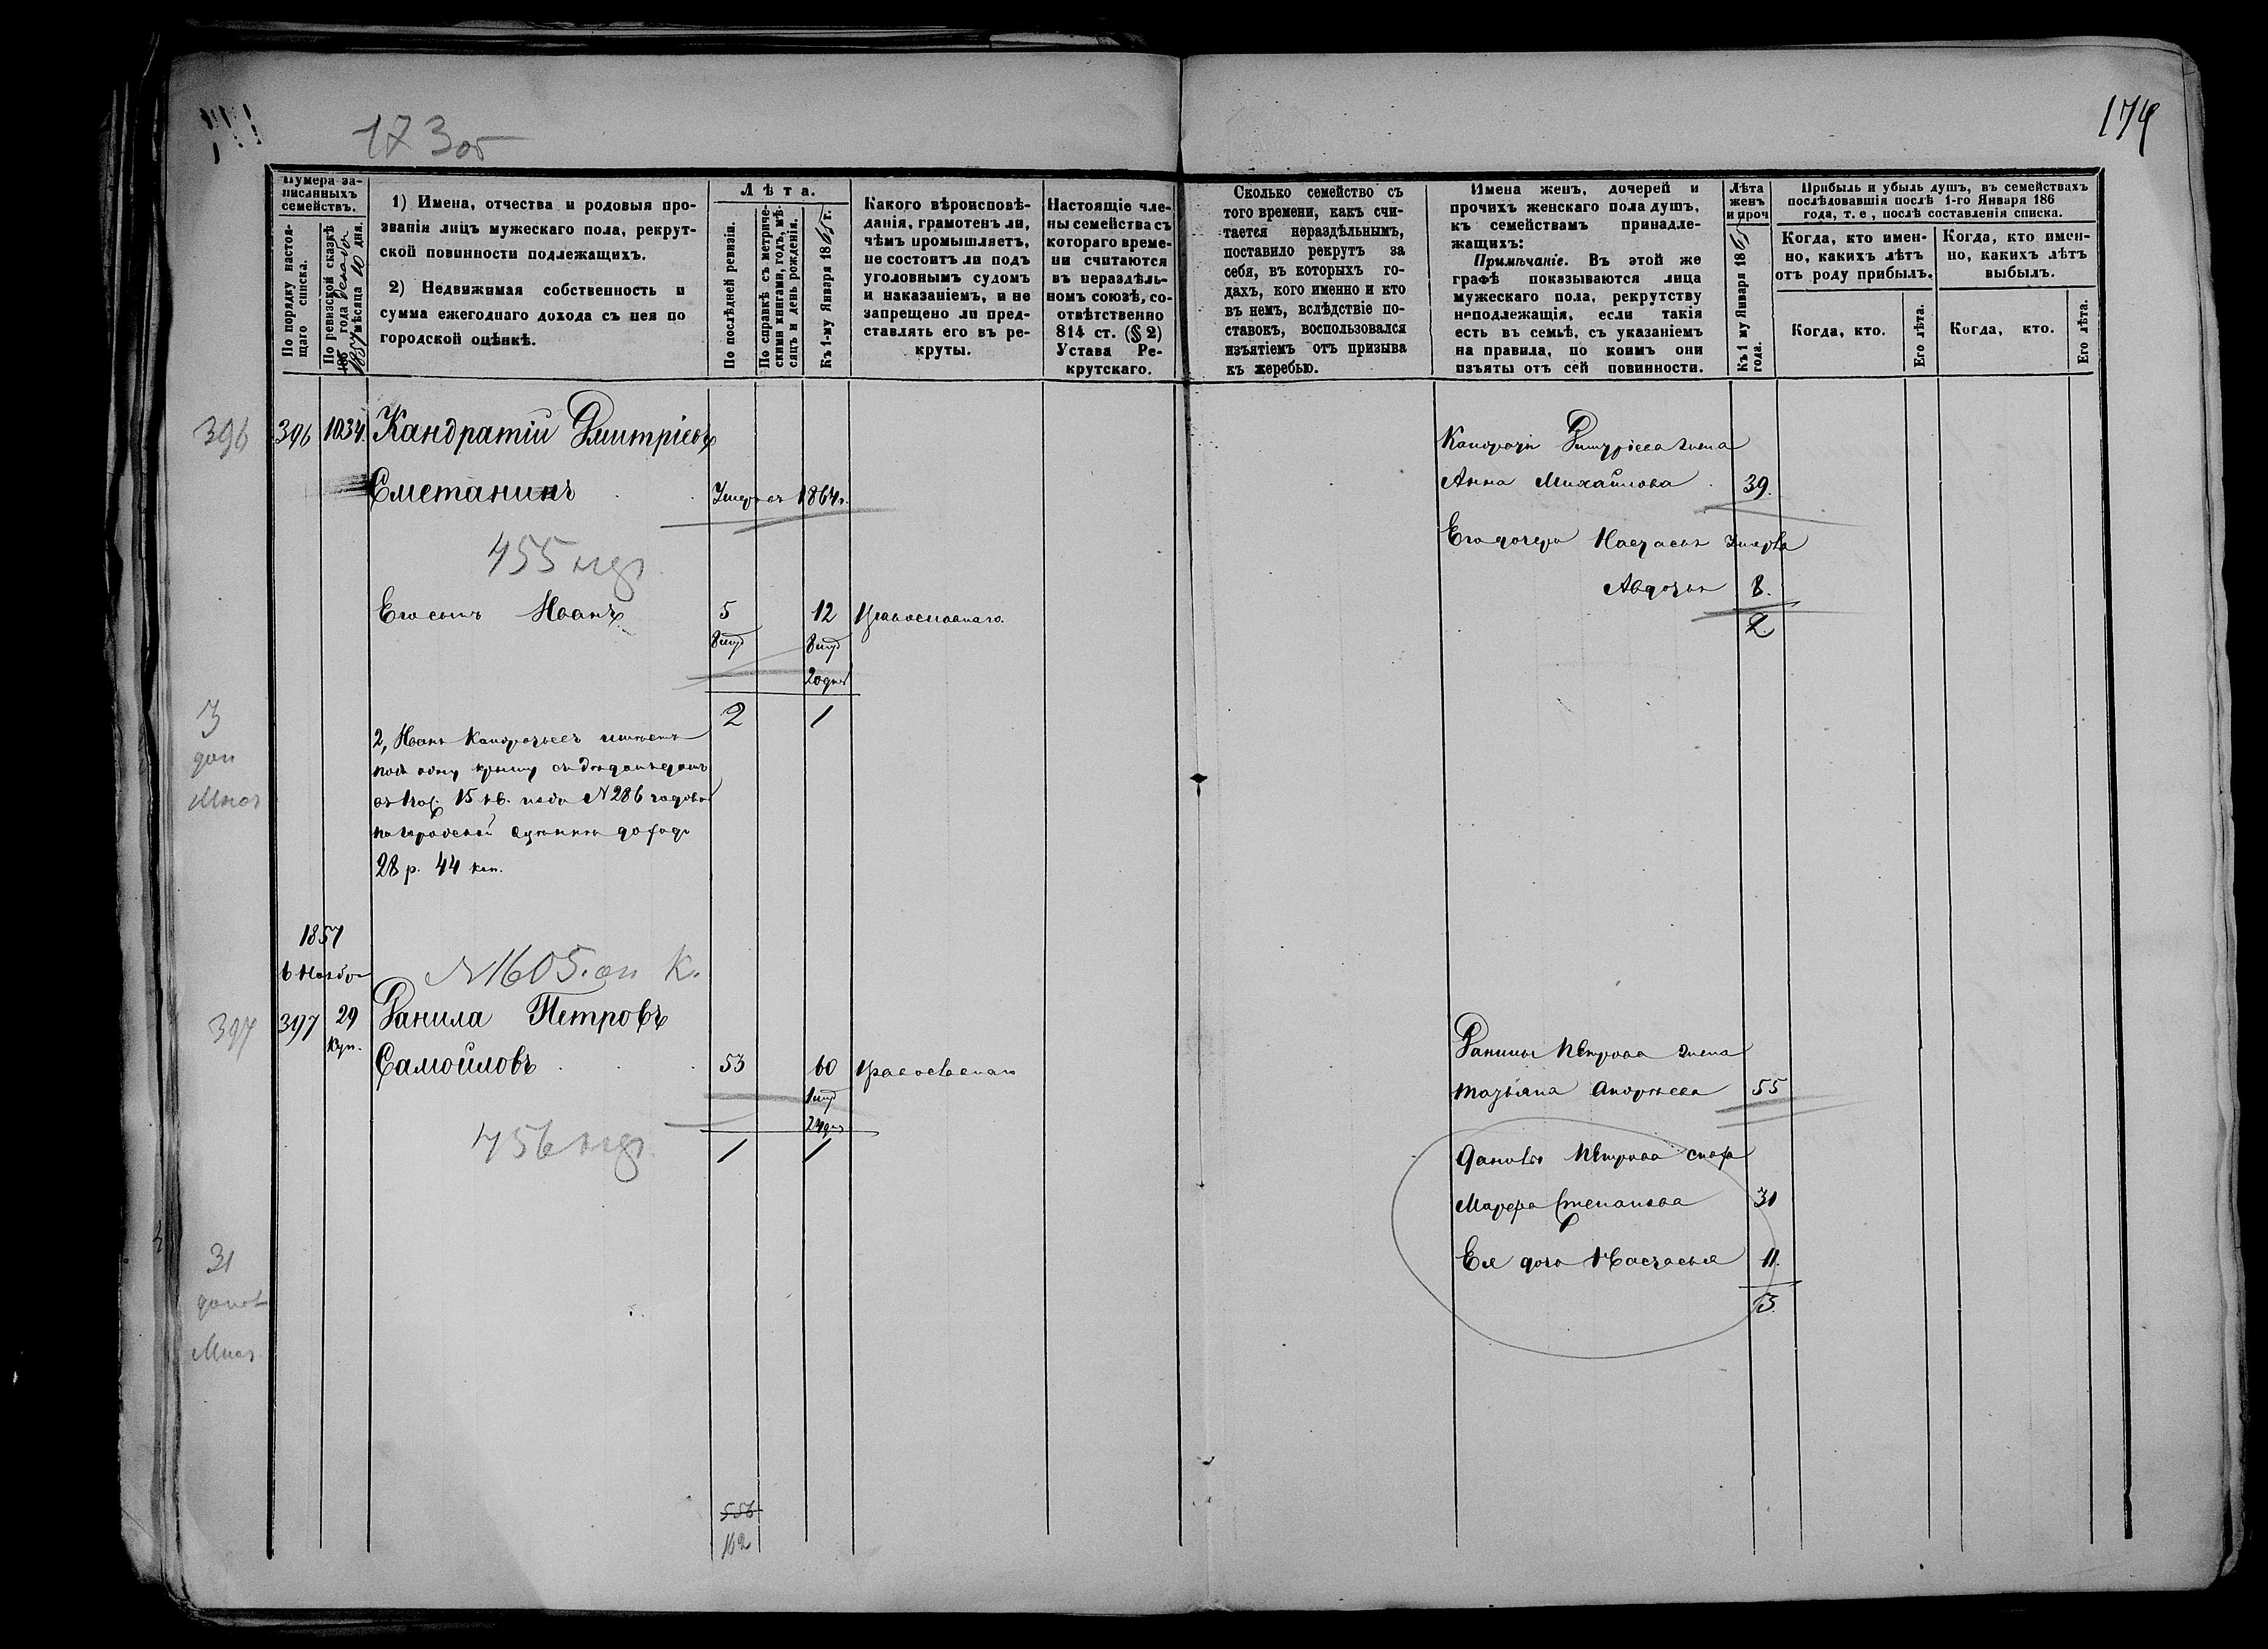 173об
174
Нумера за-
писанныхъ
семействъ.
По порядку настоя-
щаго списка.
По ревизской сказкѣ
года
мѣсяца 10 дня.
1) Имена, отчества и родовыя про-
званія лицъ мужескаго пола, рекрут-
ской повинности подлежащихъ.
2) Недвижимая собственность и
сумма ежегоднаго дохода съ нея по
городской оцѣнкѣ.
Лѣта.
По послѣдней ревизіи.
По справкѣ съ метриче-
скими книгами, годъ, мѣ-
сяцъ и день рожденія.
Къ 1-му Января 1865 г.
Какого вѣроисповѣ-
данія, грамотенъ ли,
чѣмъ промышляетъ,
не состоитъ ли подъ
уголовнымъ судомъ
и наказаніемъ, и не
запрещено ли пред-
ставлять его въ ре-
круты.
Настоящіе чле-
ны семейства съ
котораго време-
ни считаются
въ нераздѣль-
номъ союзѣ, со-
отвѣтственно
814 ст. (§ 2)
Устава Ре-
крутскаго.
Сколько семейство съ
того времени, какъ счи-
тается нераздѣльнымъ,
поставило рекрутъ за
себя, въ которыхъ го-
дахъ, кого именно и кто
въ немъ, вслѣдствіе по-
ставокъ, воспользовался
изъятіемъ отъ призыва
къ жеребью.
Имена женъ, дочерей и
прочихъ женскаго пола душъ,
къ семействамъ принадле-
жащихъ:
Примѣчаніе. Въ этой же
графѣ показываются лица
мужескаго пола, рекрутству
неподлежащія, если такія
есть въ семьѣ, съ указаніемъ
на правила, по коимъ они
изъяты отъ сей повинности.
Лѣта
женъ
и проч
Къ 1 му Января 1865
года.
Прибыль и убыль душъ, въ семействахъ
послѣдовавшія послѣ 1-го Января 186
года, т. е., послѣ составленія списка.
Когда, кто имен-
но, какихъ лѣтъ
отъ роду прибылъ.
Когда, кто имен-
но, какихъ лѣтъ
выбылъ.
Когда, кто.
Его лѣта.
Когда, кто.
Его лѣта.
396
396 1034. Кандратій Дмитріевъ
Сметанинъ Умеръ въ 1864 г.
455
Его сынъ Иванъ 5 12 Православнаго
2 1
2, Иванъ
подъ одну крышу
15 кв. подъ № 286
28 р. 44 коп.
Дмитріева жена
Анна Михайлова 39.
Его дочери Настасья Умерла
Авдотья 8.
2
3
1857
№ 1605
397
397 29 Данила Петровъ
Куп.
Самойловъ 53 60 Православнаго
456
1 1
Данилы Петрова жена
Татьяна Андреева 55
Данилы Петрова сноха
Марфа Степанова 31
Ея дочь Настасья 11.
3.
31
556
162